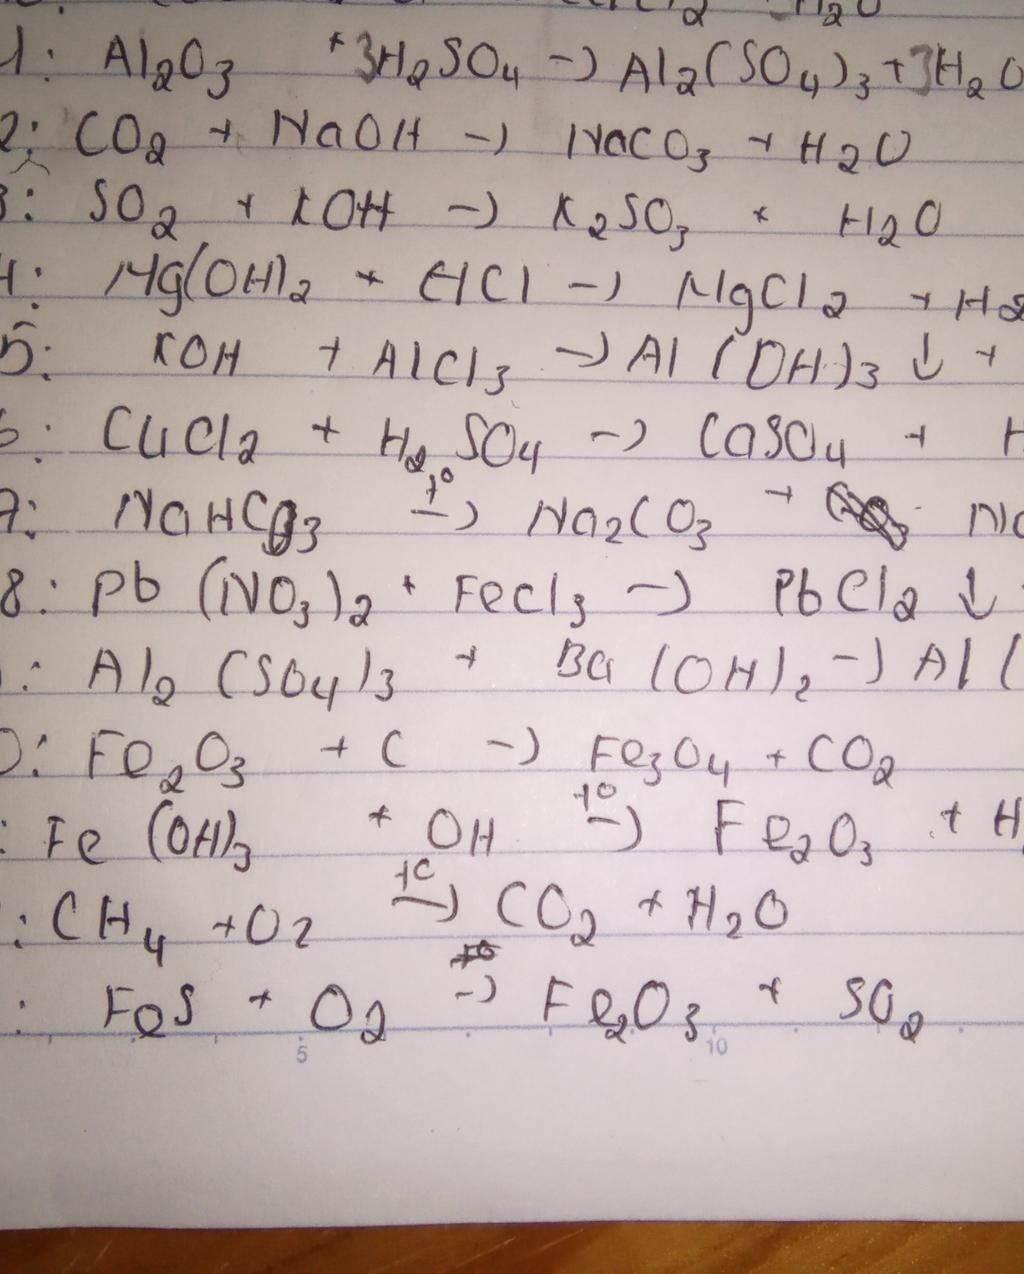 H2O
1: Al2O3 + 3H2SO4 -> Al2(SO4)3 + 3H2O
2: CO2 + NaOH -> NaCO3 + H2O
3: SO2 + KOH -> K2SO3 + H2O
4: Mg(OH)2 + HCl -> MgCl2 + H2
5: KOH + AlCl3 -> Al(OH)3 ↓ +
6: CuCl2 + H2SO4 -> CaSO4 + H
7: NaHCO3 -t°-> Na2CO3 +
8: Pb(NO3)2 + FeCl3 -> PbCl2 ↓ +
: Al2(SO4)3 + Ba(OH)2 -> Al(
0: Fe2O3 + C -> Fe3O4 + CO2
: Fe(OH)3 + OH -t°-> Fe2O3 + H
: CH4 + O2 -t°-> CO2 + H2O
: FeS + O2 -> Fe2O3 + SO2
5 10